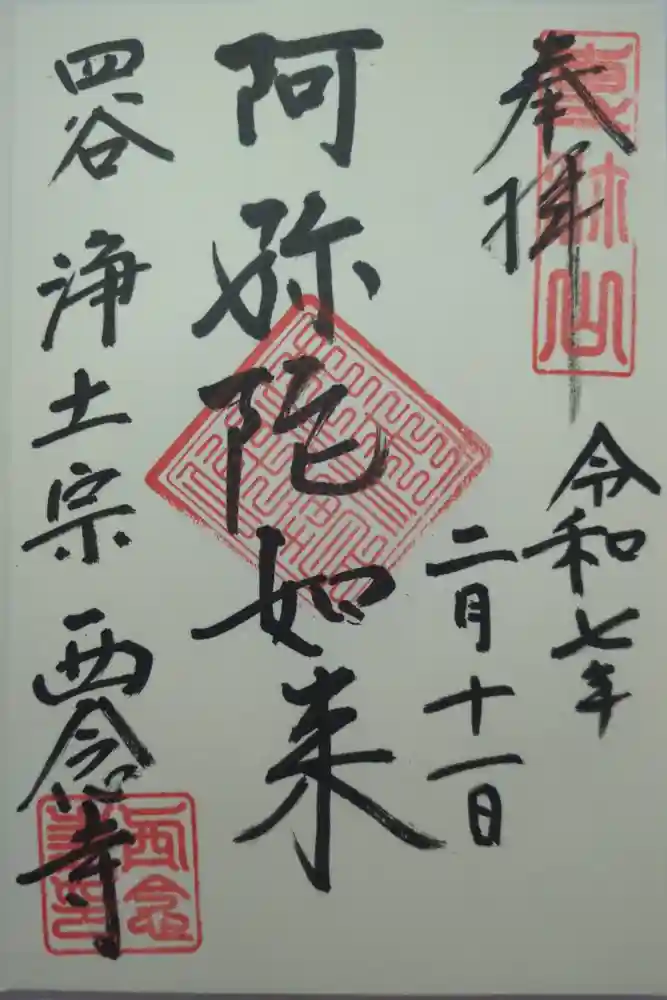 奉拝
令和七年
二月十一日
阿弥陀如来
四谷 浄土宗 西念寺